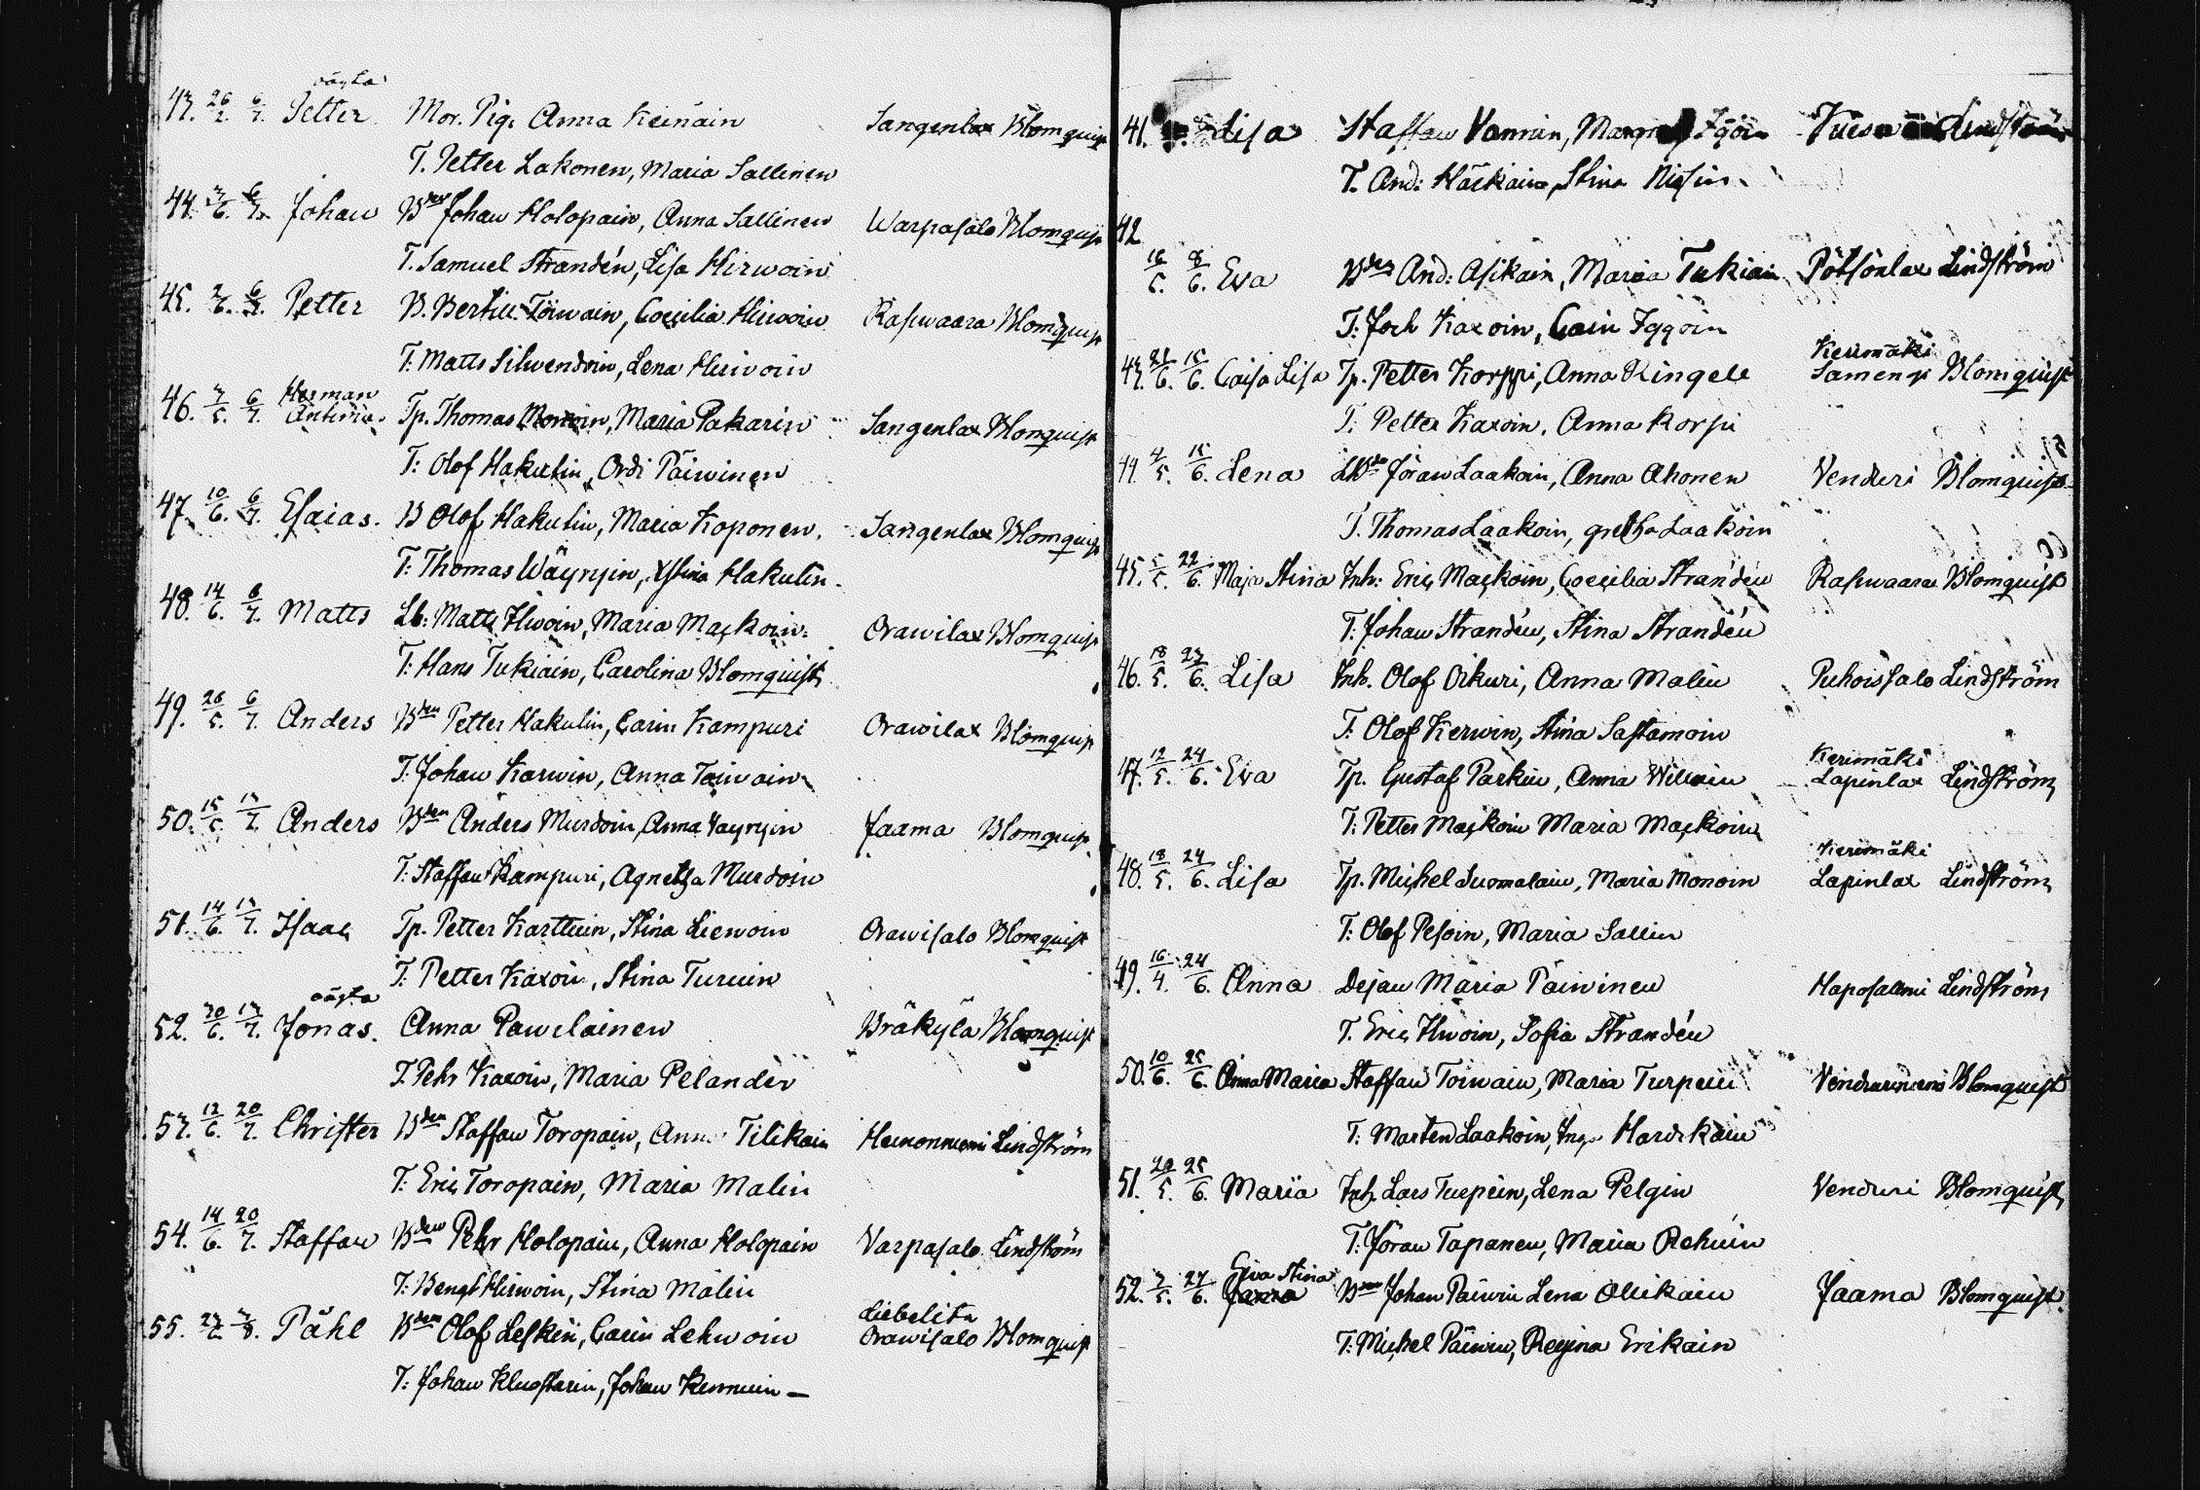 oägta
43. 26/2. 6/7. Petter. Mor. Pig. Anna Keinäin Sangenlax Blomquist
T. Petter Lakonen, Maria Sallinen
44. 3/6. 6/7. Johan Bden Johan Holopain, Anna Sallinen Warpasalo Blomquist
T. Samuel Strandén, Lisa Hirwoin
45. 2/6. 6/7. Petter B. Bertill Toiwain, Coecilia Hirwoin Raswaara Blomquist
T: Matts Silwendoin, Lena Hirwoin
Herman
46. 3/5. 6/7. Tp. Thomas Monoin, Maria Pakarin Sangenlax Blomquist
T: Olof Hakulin, Ordi Päiwinen
47. 10/6. 6/7. Esaias. B Olof Hakulin, Maria Koponen. Sangenlax Blomquist
T: Thomas Wäyryin, Stina Hakulin.
48. 14/6. 6/7. Matts Lb: Matts Ihwoin, Maria Maçkoin. Orawilax Blomquist
T: Hans Tukiain, Carolina Blomquist
49. 26/5. 6/7. Anders Bden Petter Hakulin, Carin Kampuri Orawilax Blomquist
T. Johan Karwin, Anna Toiwain
50. 15/5. 13/7. Anders Bden Anders Murdoin, Anna Vayryin Jaama Blomquist
T: Staffan Kampuri, Agnetha Murdoin
51. 14/6. 13/7. Isaac Tp. Petter Karttuin, Stina Liewoin Orawisalo Blomquist
T: Petter Kaxoin, Stina Turuin
oägta
52. 30/6. 13/7. Jonas. Anna Pawelainen Bräkylä Blomquist
T. Pehr Kaxoin, Maria Pelander
53. 12/6. 20/7. Christer Bden Staffan Toropain, Anna Tilikain Hemonniemi Lindström
T: Eric Toropain, Maria Malin
54. 14/6. 20/7. Staffan Bden Pehr Holopain, Anna Holopain Varpasalo Lindström
T: Bengt Hirwoin, Stina Malin
Liebelits
55. Påhl Bden Olof Leskin, Carin Lehwoin Orawisalo Blomquist
T: Johan Johan —
41. Lisa Staffan Vannin, Lindström
T. And: Häikain, Stina
42
16/5. 8/6. Eva Bden And: Asikain, Maria Tukiain Pötsönlax Lindström
T: Joch Kaxoin, Carin Iggöin
Kerimäki
43. 21/6. 15/6. Caisa Lisa Tp. Petter Korppi, Anna Ringell Blomquist
T: Petter Kaxoin, Anna Korpi
44. 4/5. 15/6. Lena Jöran Laakoin, Anna Ahonen Venduri Blomquist
T. Thomas Laakoin, gretha Laakoin
45. 5/5. 22/6. Maja Stina Inh: Eric Maçkoin, Coecilia Strandén Raswaara Blomquist
T: Johan Strandén, Stina Strandén
46. 18/5. 23/6. Lisa Inh. Olof Oikuri, Anna Malin Puhoissalo Lindström
T. Olof Kerwin, Stina Sastamoin
Kerimäki
47. 12/5. 24/6. Eva Tp. Gustaf Parkin, Anna Lapinlax Lindström
T: Petter Maçkoin Maria Maçkoin
Kerimäki
48. 18/5. 24/6. Lisa Tp. Michel Suomalain, Maria Monoin Lapinlax Lindström
T: Olof Pesoin, Maria Sallin
49. 16/4. 24/6. Anna Dejan Maria Päiwinen Haposalmi Lindström
T. Eric Ihwoin, Sofia Strandén
50. 10/6. 25/6. Anna Maria Staffan Toiwain, Maria Turpein Blomquist
T: Mårten Laakoin,
51. 20/5. 25/6. Maria Inh. Lars Turpein, Lena Pelgin Venduri Blomquist
T: Jöran Tapanen, Maria Rehuin
Eva Stina
52. 3/5. 27/6. Bden Johan Päiwin Lena Ollikain Jaama Blomquist.
T: Michel Päiwin, Regina Erikain